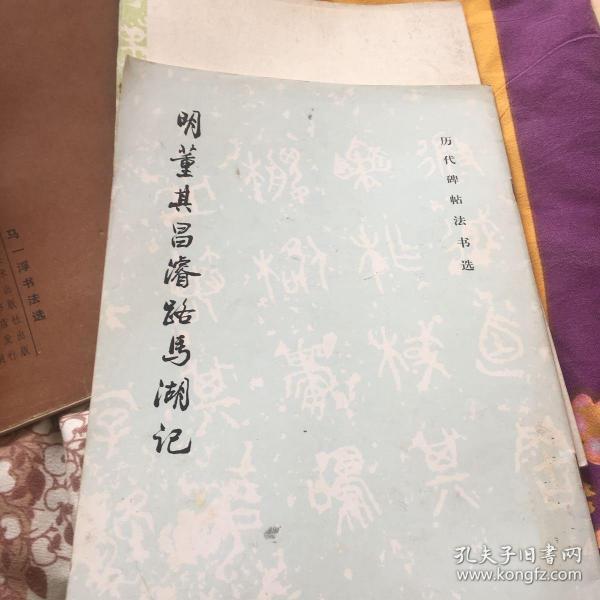 明董其昌濬路马湖记
历代碑帖法书选
马一浮书法选
孔夫子旧书网
www.kongfz.com